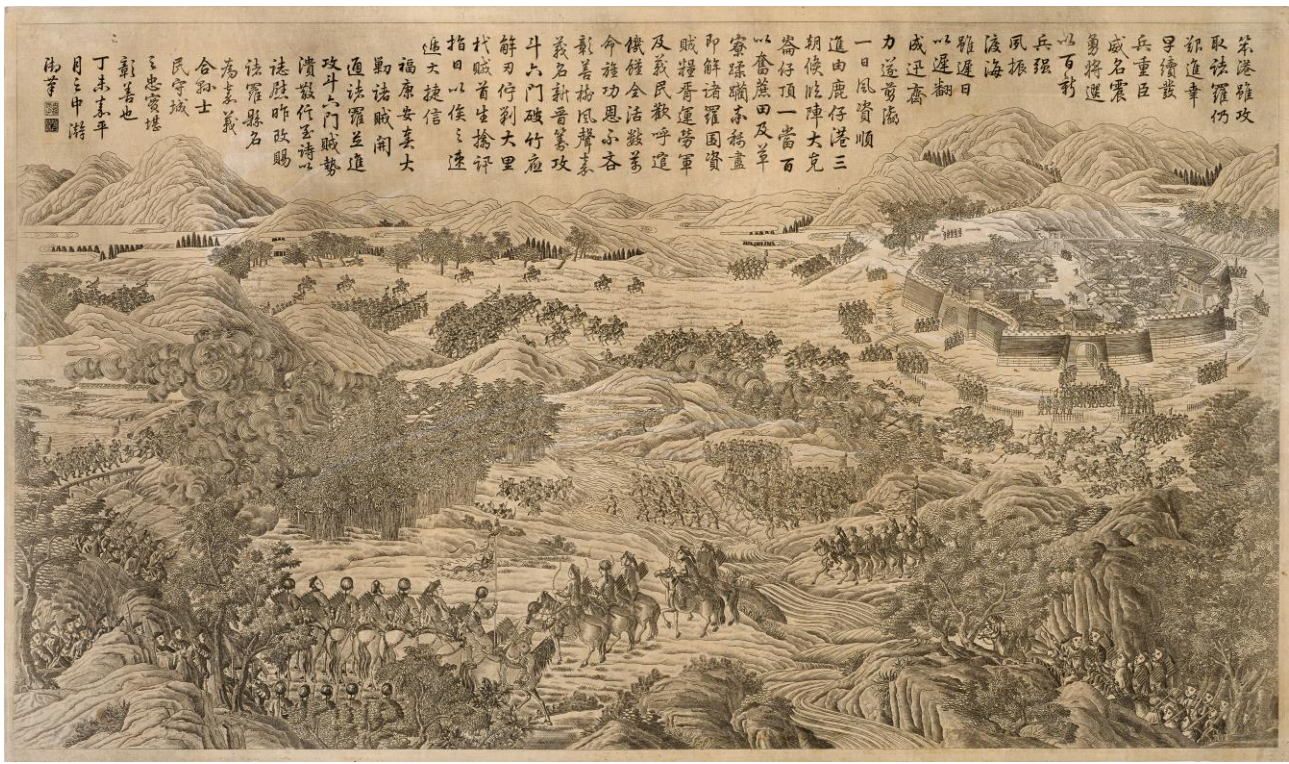 笨港雖攻
取諸羅仍
艱進幸
早續發
兵重臣
威名震
勇將選
以百新
兵强
風振
渡海
雖遲日
以遲翻
成迅齊
力遂剪瀛
一日風資順
進由鹿仔港三
朝候臨陣大克
崙仔頂一當百
以奮蔗田及草
寮蹂躪亦稱盡
即解諸羅圍資
賊糧胥運勞軍
及義民歡呼遑
饑饉全活數萬
命旌功恩不吝
彰善樹風聲嘉
義名新晉籌攻
斗六門破竹應
解刃佇剿大里
杙賊首生擒訊
指日以俟之速
遞大捷信
福康安奏大
勦諸賊開
通諸羅並進
攻斗六門賊勢
潰散信至詩以
誌慰昨改賜
諸羅縣名
為嘉義
合縣士
民守城
之忠實堪
彰善也
丁未嘉平
月之中澣
御筆